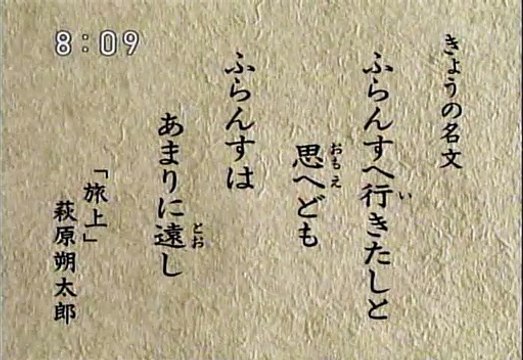 8:09
きょうの名文
ふらんすへ行きたしと
い
思へども
おもえ
ふらんすは
あまりに遠し
とお
「旅上」
萩原朔太郎